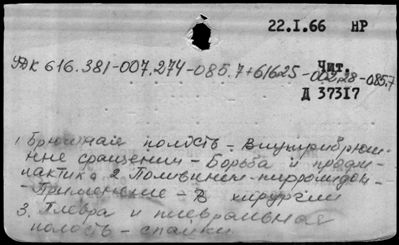 22.I.66 НР
УДК 616.381-007.274-085.7+616.25-002.28-085.7
Чит.
Д 37317
1. Брюшная полость – Внутрибрюш-
ные сращения – Борьба и профи-
лактика 2. Поливинил-пирролидон –
– Применение – В хирургии
3. Плевра и плевральная
полость – спайки